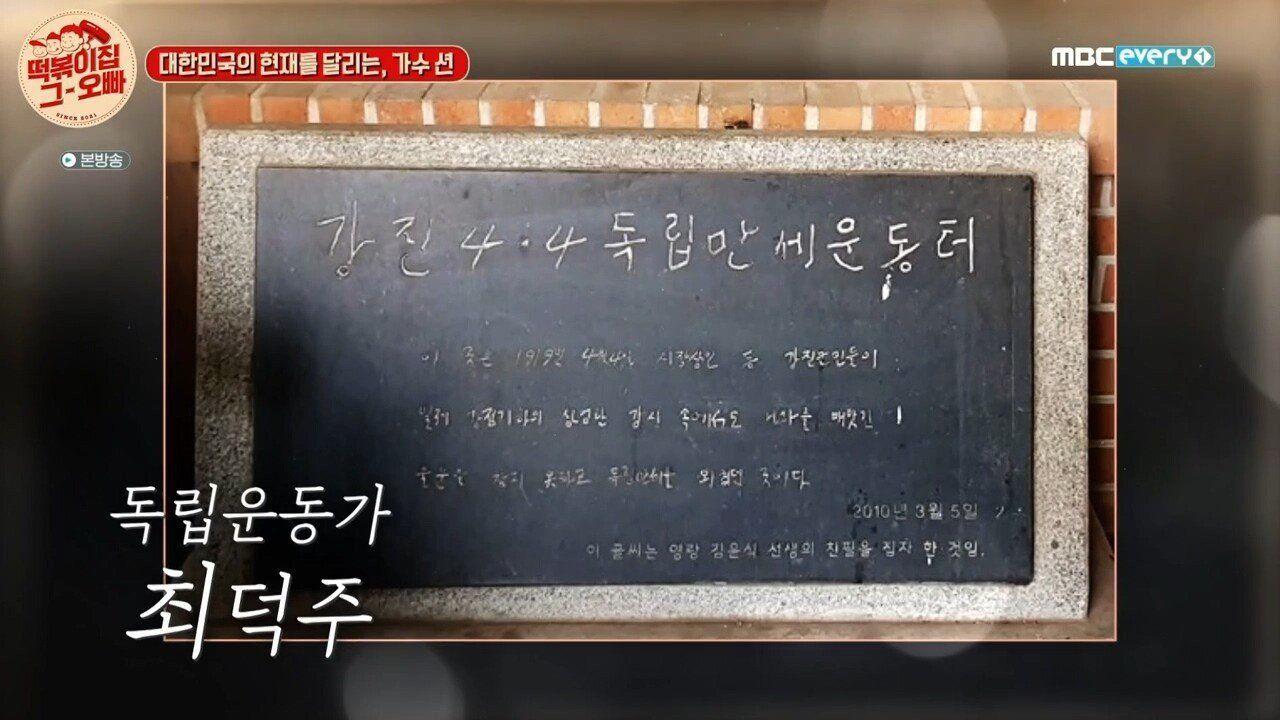 떡볶이집
그-오빠
SINCE 2021
대한민국의 현재를 달리는, 가수 션
MBC every1
본방송
강진 4·4 독립만세운동터
이 곳은 1919년 4월4일 시장상인 등 강진군민들이
일제 강점기하의 삼엄한 감시 속에서도 나라를 빼앗긴
울분을 참지 못하고 독립만세를 외쳤던 곳이다
2010년 3월 5일
이 글씨는 영랑 김윤식 선생의 친필을 집자 한 것임.
독립운동가
최덕주